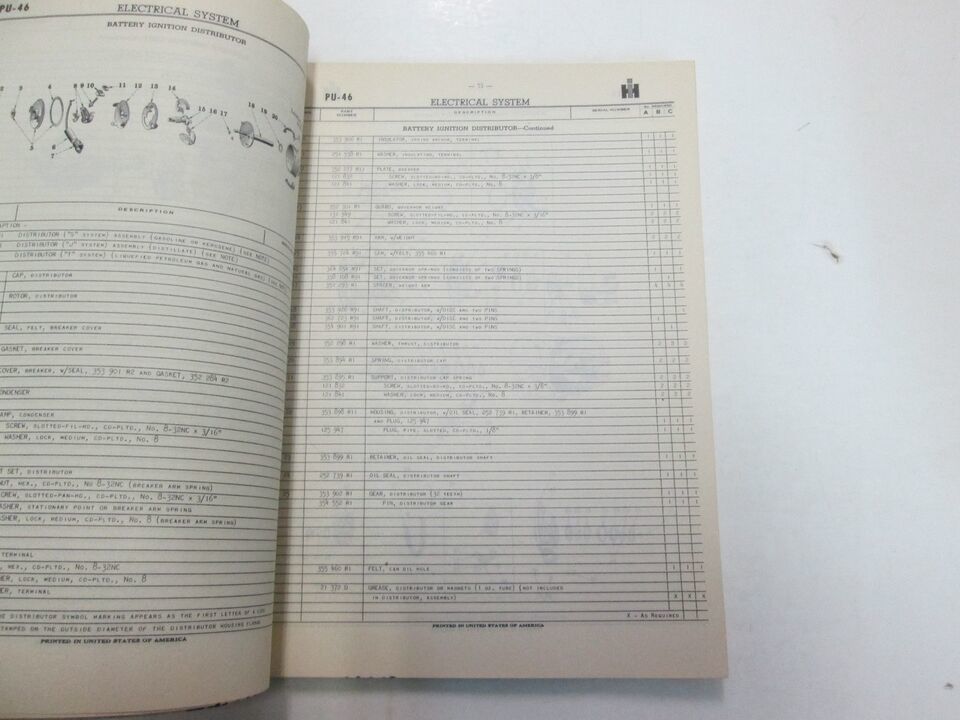 PU-46
ELECTRICAL SYSTEM
BATTERY IGNITION DISTRIBUTOR
DESCRIPTION
DISTRIBUTOR ("S" SYSTEM) ASSEMBLY (GASOLINE OR KEROSENE) (SEE NOTE)
DISTRIBUTOR ("J" SYSTEM) ASSEMBLY (DISTILLATE) (SEE NOTE)
DISTRIBUTOR ("T" SYSTEM) (LIQUEFIED PETROLEUM GAS AND NATURAL GAS) (SEE NOTE)
CAP, DISTRIBUTOR
ROTOR, DISTRIBUTOR
SEAL, FELT, BREAKER COVER
GASKET, BREAKER COVER
COVER, BREAKER, W/SEAL, 353 901 R2 AND GASKET, 352 284 R2
CONDENSER
CLAMP, CONDENSER
SCREW, SLOTTED-FIL-HD., CD-PLTD., NO. 8-32NC X 3/16"
WASHER, LOCK, MEDIUM, CD-PLTD., NO. 8
SET, DISTRIBUTOR
NUT, HEX., CD-PLTD., NO 8-32NC (BREAKER ARM SPRING)
SCREW, SLOTTED-PAN-HD., CD-PLTD., NO. 8-32NC X 3/16"
WASHER, STATIONARY POINT OR BREAKER ARM SPRING
WASHER, LOCK, MEDIUM, CD-PLTD., NO. 8 (BREAKER ARM SPRING)
TERMINAL
HEX., CD-PLTD., NO. 8-32NC
LOCK, MEDIUM, CD-PLTD., NO. 8
TERMINAL
DISTRIBUTOR SYMBOL MARKING APPEARS AS THE FIRST LETTER OF A
STAMPED ON THE OUTSIDE DIAMETER OF THE DISTRIBUTOR HOUSING FLANGE
PRINTED IN UNITED STATES OF AMERICA
PU-46
ELECTRICAL SYSTEM
IH
PART NUMBER DESCRIPTION SERIAL NUMBER NO. REQUIRED
A B C
BATTERY IGNITION DISTRIBUTOR—Continued
INSULATOR, SPRING ANCHOR, TERMINAL 1 1 1
WASHER, INSULATING, TERMINAL 1 1 1
PLATE, BREAKER 1 1 1
121 832 SCREW, SLOTTED-RD-HD., CD-PLTD., NO. 8-32NC X 3/8"
121 841 WASHER, LOCK, MEDIUM, CD-PLTD., NO. 8
GUARD, GOVERNOR WEIGHT
SCREW, SLOTTED-FIL-HD., CD-PLTD., NO. 8-32NC X 3/16" 2 2 2
121 841 WASHER, LOCK, MEDIUM, CD-PLTD., NO. 8 2 2 2
ARM, W/WEIGHT 2 2 2
CAM, W/FELT, 355 460 R1 1 1 1
SET, GOVERNOR SPRINGS (CONSISTS OF TWO SPRINGS)
SET, GOVERNOR SPRINGS (CONSISTS OF TWO SPRINGS)
SPACER, WEIGHT ARM 4 4 4
SHAFT, DISTRIBUTOR, W/DISC AND TWO PINS
SHAFT, DISTRIBUTOR, W/DISC AND TWO PINS
SHAFT, DISTRIBUTOR, W/DISC AND TWO PINS
352 298 R1 WASHER, THRUST, DISTRIBUTOR 2 2 2
353 894 R1 SPRING, DISTRIBUTOR CAP 2 2 2
353 895 R1 SUPPORT, DISTRIBUTOR CAP SPRING 2 2 2
121 832 SCREW, SLOTTED-RD-HD., CD-PLTD., NO. 8-32NC X 3/8" 2 2 2
121 841 WASHER, LOCK, MEDIUM, CD-PLTD., NO. 8 2 2 2
353 898 R11 HOUSING, DISTRIBUTOR, W/OIL SEAL, 252 739 R1, RETAINER, 353 899 R1
AND PLUG, 125 947 1 1 1
125 947 PLUG, PIPE, SLOTTED, CD-PLTD., 1/8" 1 1 1
353 899 R1 RETAINER, OIL SEAL, DISTRIBUTOR SHAFT 1 1 1
252 739 R1 OIL SEAL, DISTRIBUTOR SHAFT 1 1 1
353 902 R1 GEAR, DISTRIBUTOR (32 TEETH) 1 1 1
354 552 R1 PIN, DISTRIBUTOR GEAR 1 1 1
355 460 R1 FELT, CAM OIL HOLE 1 1 1
21 372 D GREASE, DISTRIBUTOR OR MAGNETO (1 OZ. TUBE) (NOT INCLUDED
IN DISTRIBUTOR, ASSEMBLY) X X X
X - AS REQUIRED
PRINTED IN UNITED STATES OF AMERICA